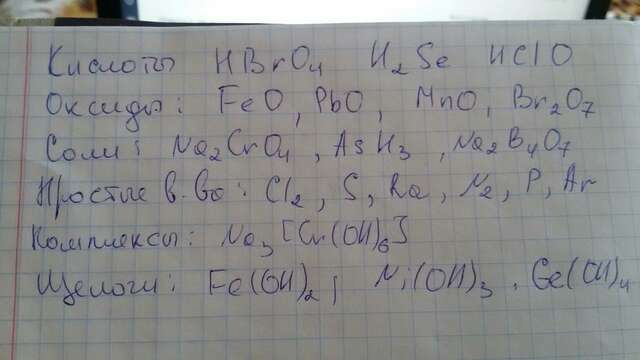 Кислоты HBrO4 H2Se HClO
Оксиды: FeO, PbO, MnO, Br2O7
Соли: Na2CrO4, AsH3, Na2B4O7
Простые в-ва: Cl2, S, Ra, N2, P, Ar
Комплексы: Na3[Cr(OH)6]
Щелочи: Fe(OH)2, Ni(OH)3, Ge(OH)4